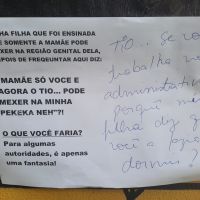 HA FILHA QUE FOI ENSINADA
E SOMENTE A MAMÃE PODE
EXER NA REGIÃO GENITAL DELA,
POIS DE FREQEUNTAR AQUI DIZ:
MAMÃE SÓ VOCE E
AGORA O TIO... PODE
MEXER NA MINHA
PEKEKA NEH"?!
O QUE VOCÊ FARIA?
Para algumas
autoridades, é apenas
uma fantasia!
TIO... se vo
trabalha n
administrati
porquê me
filha diz q
você a
dormir?